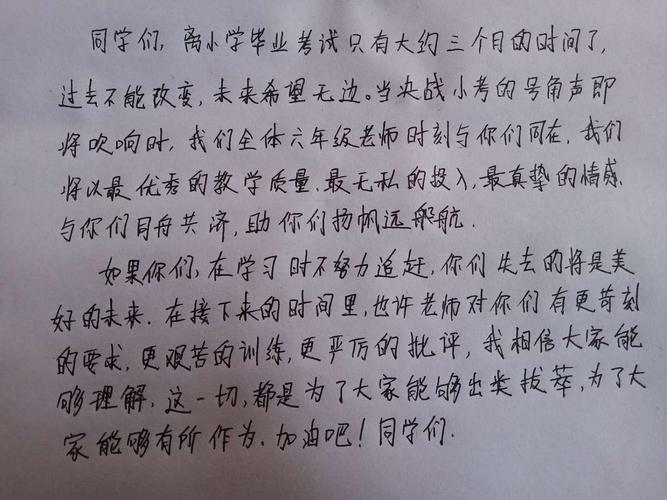 同学们，离小学毕业考试只有大约三个月的时间了，
过去不能改变，未来希望无边。当决战小考的号角声即
将吹响时，我们全体六年级老师时刻与你们同在，我们
将以最优秀的教学质量、最无私的投入，最真挚的情感
与你们同舟共济，助你们扬帆远航．
如果你们，在学习时不努力追赶，你们失去的将是美
好的未来．在接下来的时间里，也许老师对你们有更苛刻
的要求，更艰苦的训练，更严厉的批评，我相信大家能
够理解，这一切，都是为了大家能够出类拔萃，为了大
家能够有所作为．加油吧！同学们．